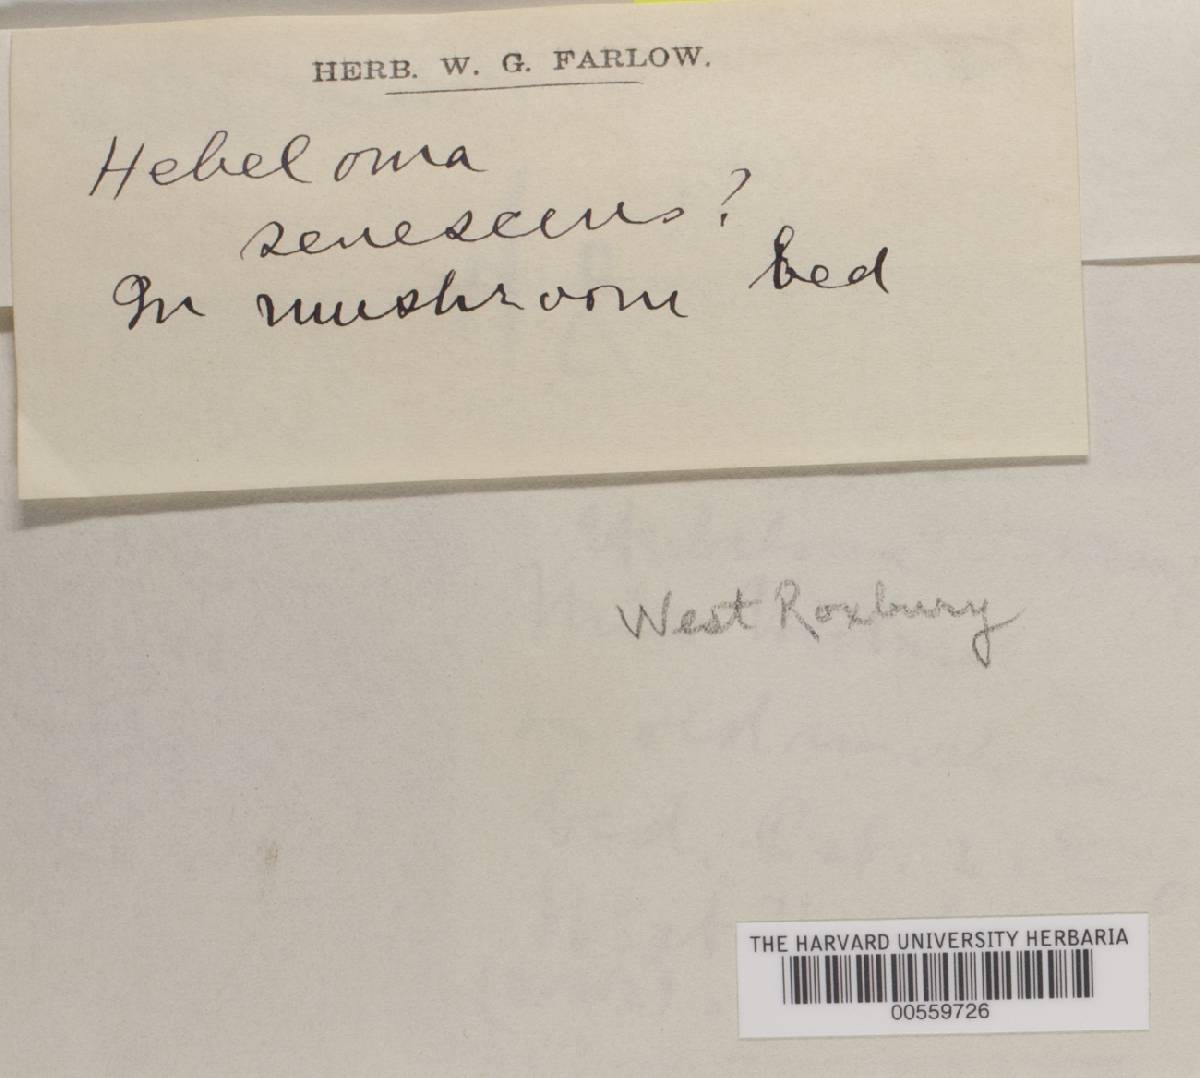 HERB. W. G. FARLOW.
Hebeloma
senescens?
In mushroom bed
West Roxbury
THE HARVARD UNIVERSITY HERBARIA
00559726